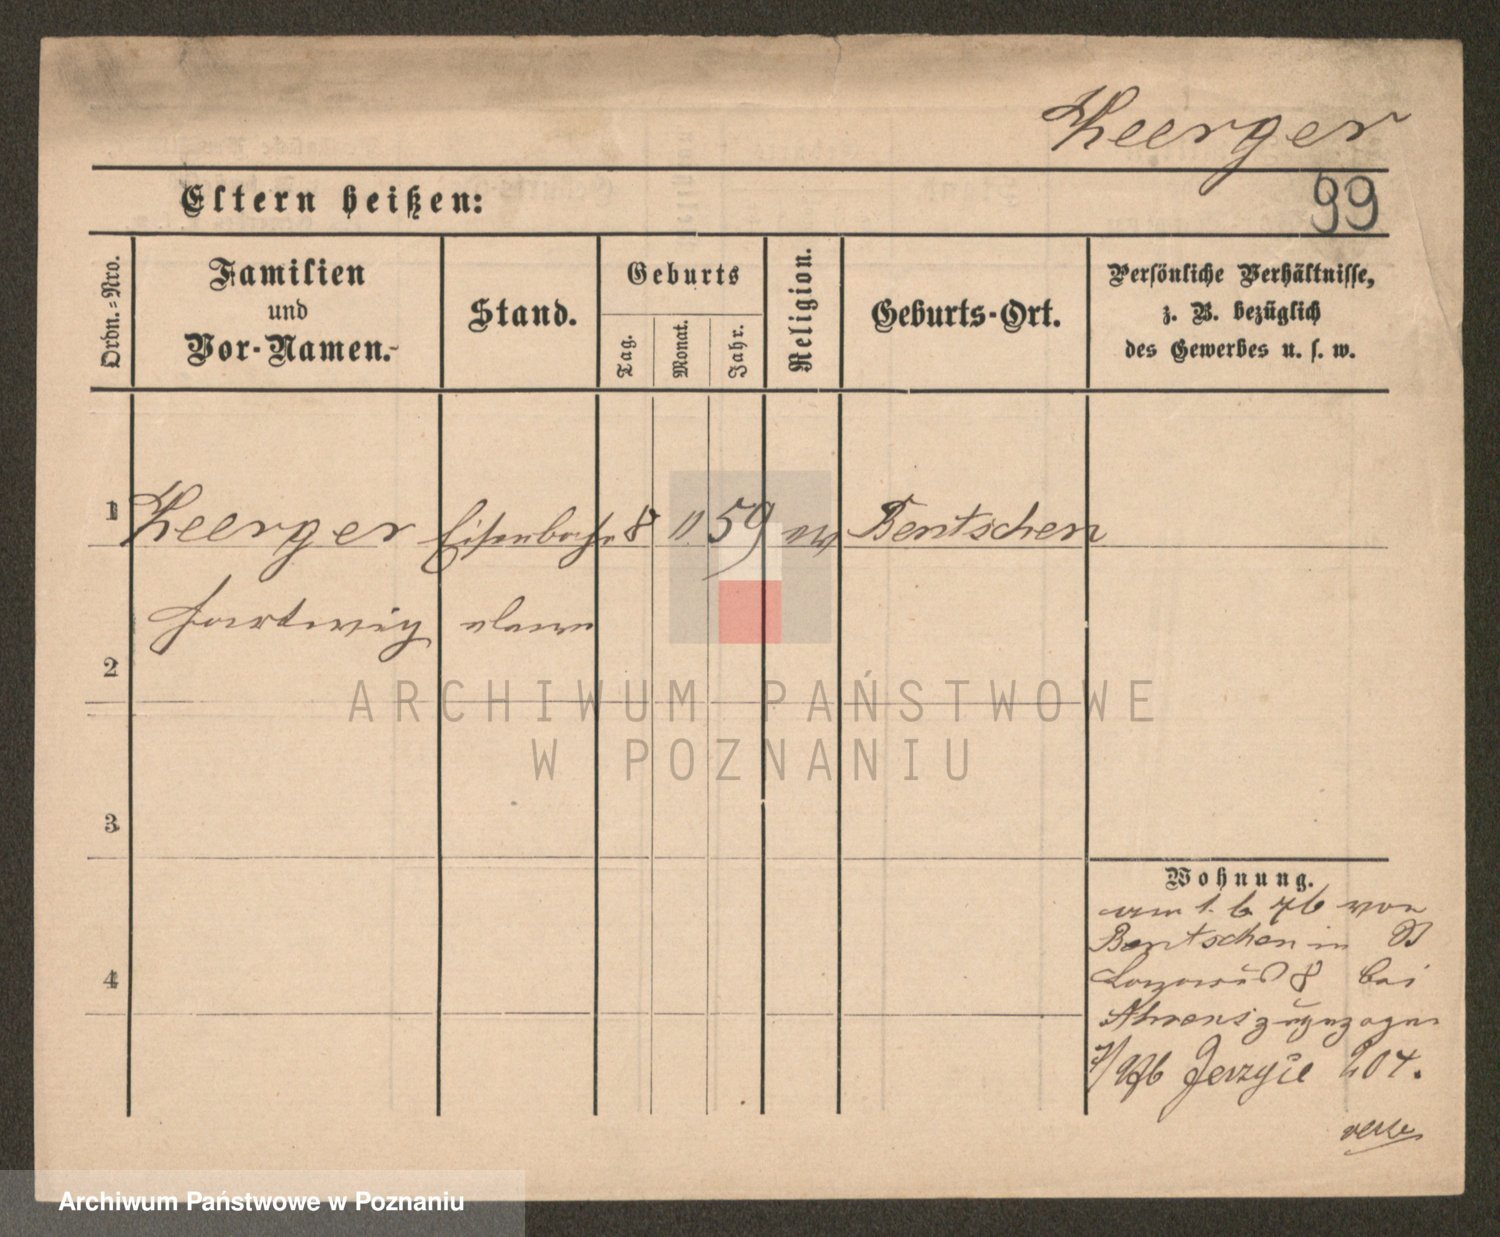 Heerger
99
Eltern heißen:
Ordn.-Nro.
Familien
und
Vor-Namen.
Stand.
Geburts
Tag.
Monat.
Jahr.
Religion.
Geburts-Ort.
Persönliche Verhältnisse,
z. B. bezüglich
des Gewerbes u. s. w.
1 Heerger Eisenbahn 8 11 59 ev Bentschen
Hartwig
2
3
4
Wohnung.
am 1. 6. 76 von
Bentschen in
8 bei
Ahrens zugezogen
Jerzyce 204.
ARCHIWUM PAŃSTWOWE
W POZNANIU
Archiwum Państwowe w Poznaniu